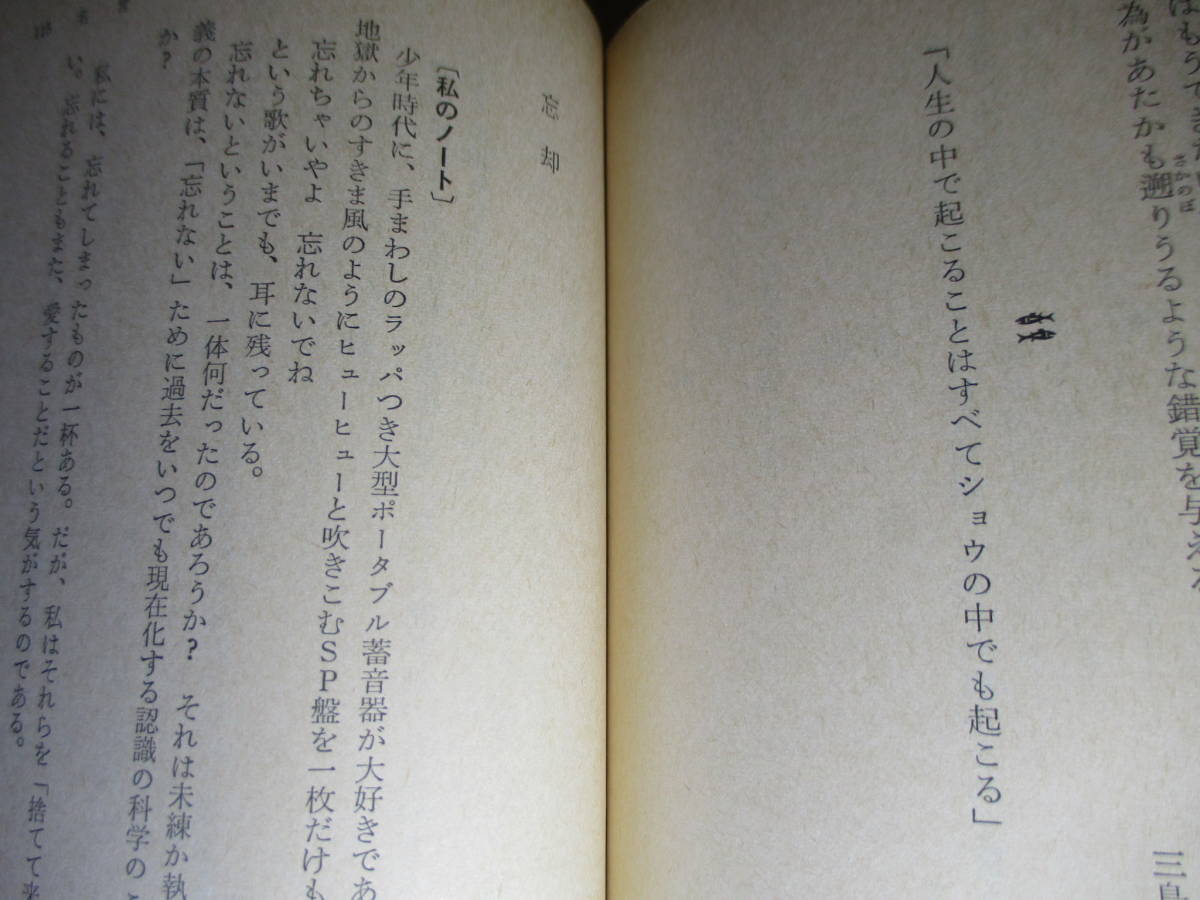 為があたかも遡りうるような錯覚を与える
さかのぼ
三島
「人生の中で起こることはすべてショウの中でも起こる」
忘却
〔私のノート〕
少年時代に、手まわしのラッパつき大型ポータブル蓄音器が大好きであ
地獄からのすきま風のようにヒューヒューと吹きこむSP盤を一枚だけも
忘れちゃいやよ 忘れないでね
という歌がいまでも、耳に残っている。
忘れないということは、一体何だったのであろうか? それは未練か執
義の本質は、「忘れない」ために過去をいつでも現在化する認識の科学の
か?
私には、忘れてしまったものが一杯ある。だが、私はそれらを「捨てて来
い。忘れることもまた、愛することだという気がするのである。